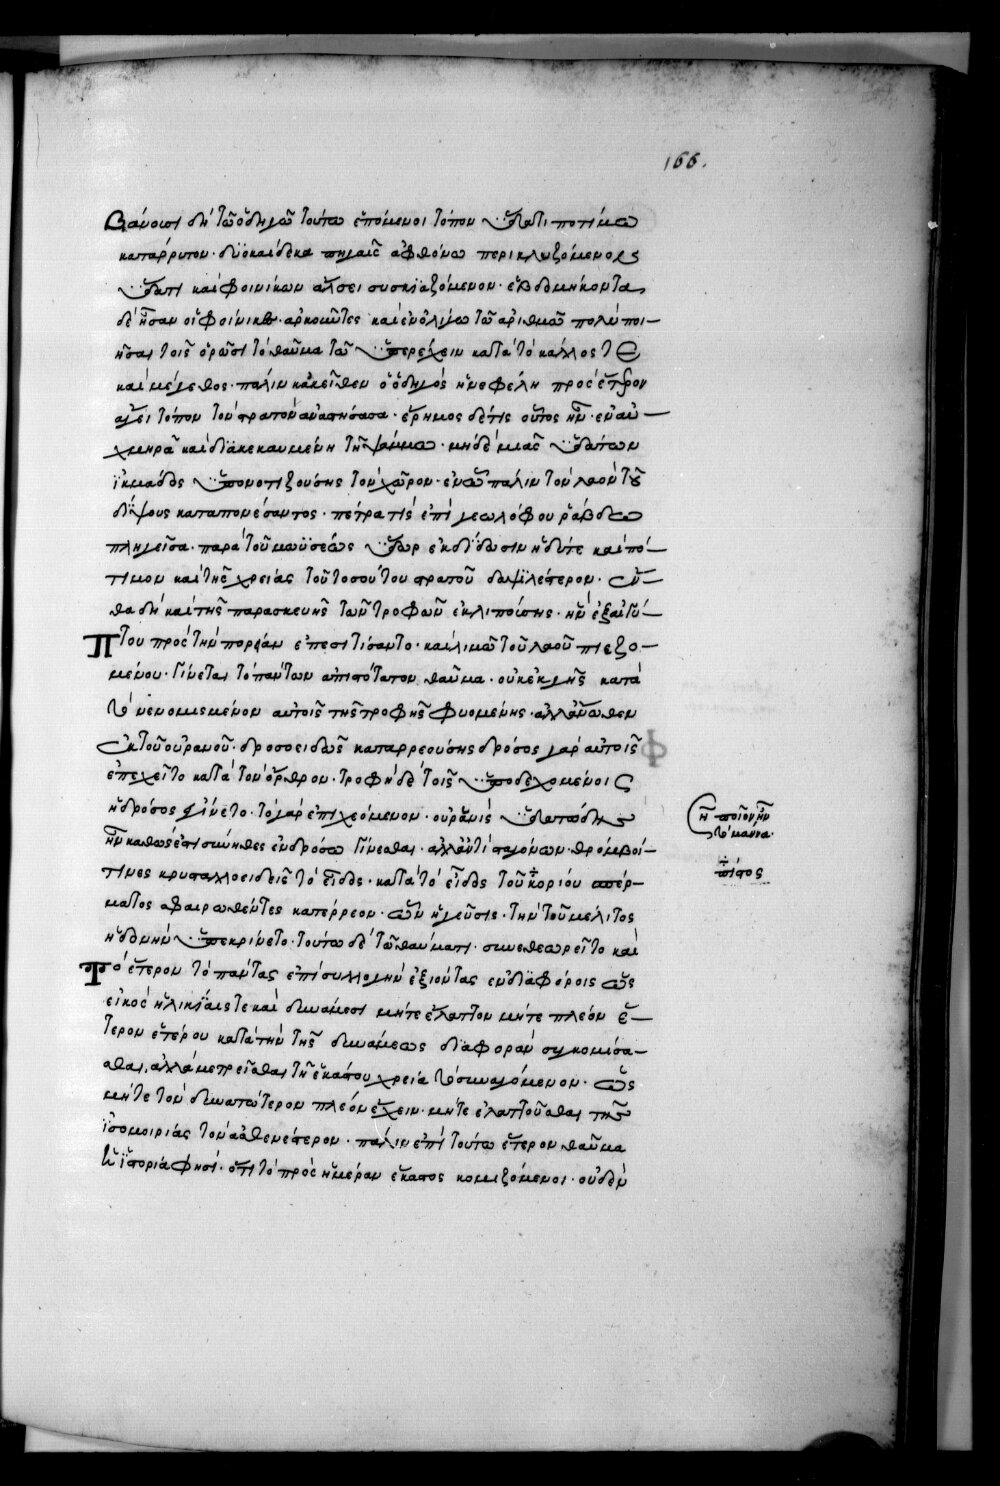 166.
βάνουσι δὴ τῶ ὁδηγῶ τούτω ἑπόμενοι τόπον ὕδατι ποτίμω
κατάρρυτον · δυοκαίδεκα πηγαῖς ἀφθόνω περικλυζόμενον
ὕδατι καὶ φοινίκων ἄλσει συσκιαζόμενον · ἑβδομήκοντα
δὲ ἦσαν οἱ φοίνικες · ἀρκοῦντες καὶ ἐν ὀλίγω τῶ ἀριθμῶ πολὺ ποι–
ῆσαι τοῖς ὁρῶσι τὸ θαῦμα τῶ ὑπερέχειν κατὰ τὸ κάλλος τε
καὶ μέγεθος · πάλιν κἀκεῖθεν ὁ ὁδηγὸς ἡ νεφέλη πρὸς ἕτερον
ἄγει τόπον τὸν στρατὸν ἀναστήσασα · ἔρημος δέ τις οὗτος ἦν · ἐν αὐ–
χμηρᾶ καὶ διακεκαυμένη τῆ ψάμμω · μηδὲ μιᾶς ὑδάτων
ἰκμάδος ὑπονοτιζούσης τὸν χῶρον · ἐν ὧ πάλιν τὸν λαὸν τοῦ
δίψους καταπονέσαντος · πέτρα τίς ἐπὶ γεωλόφου ῥάβδω
πληγεῖσα · παρὰ τοῦ μωϋσέως ὕδωρ ἐκδίδωσιν ἡδύτε καὶ πό–
τιμον καὶ τῆς χρείας τοῦ τοσούτου στρατοῦ δαψιλέστερον · ἔν–
θα δὴ καὶ τῆς παρασκευῆς τῶν τροφῶν ἐκλιποίσης · ἣν ἐξ αἰγύ–
πτου πρὸς τὴν πορείαν ἐπεσιτίσαντο · καὶ λιμῶ τοῦ λαοῦ πιεζο–
μένου · γίνεται τὸ πάντων ἀπιστότατον θαῦμα · οὐκ ἐκ γῆς κατὰ
τὸ νενομισμένον αὐτοῖς τῆς τροφῆς φυομένης · ἀλλ' ἄνωθεν
ἐκ τοῦ οὐρανοῦ · δροσοειδῶς καταρρεούσης δρόσος γὰρ αὐτοῖς
ἐπεχεῖτο κατὰ τὸν ὄρθρον · τροφὴ δὲ τοῖς ὑποδεχομένοις
ἡ δρόσος ἐγίνετο · τὸ γὰρ ἐπιχεόμενον · οὐ ῥανὶς ὑδατώδης
ἦν καθώς ἐστι σύνηθες ἐν δρόσω γίνεσθαι · ἀλλ' ἀντὶ σταγόνων · θρόμβοι–
τινες κρυσταλλοειδεῖς τὸ εἶδος · κατὰ τὸ εἶδος τοῦ κορίου σπέρ–
ματος σφαιρωθέντες κατέρρεον · ὧν ἡ γεῦσις · τὴν τοῦ μέλιτος
ἡδονὴν ὑπεκρίνετο · τούτω δὲ τῶ θαύματι · συνεθεωρεῖτο καὶ
τὸ ἕτερον τὸ πάντας ἐπὶ συλλογὴν ἐξιόντας ἐν διαφόροις ὡς
εἰκὸς ἡλικίαις τε καὶ δυνάμεσι μήτε ἔλαττον μήτε πλέον ἕ–
τερον ἑτέρου κατὰ τὴν τῆς δυνάμεως διαφορὰν συγκομίσα–
σθαι, ἀλλὰ μετρεῖσθαι τῆ ἑκάστου χρεία τὸ συναγόμενον · ὡς
μήτε τὸν δυνατώτερον πλέον ἔχειν · μήτε ἐλαττοῦσθαι τῆς
ἰσομοιρίας τὸν ἀσθενέστερον · πάλιν ἐπὶ τούτω ἕτερον θαῦμα
ἡ ἱστορία φησί · ὅτι τὸ πρὸς ἡμέραν ἕκαστος κομιζόμενοι · οὐδὲν
ποῖον ἦν
τὸ μάννα ·